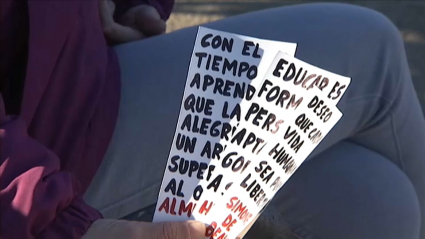 CON EL
TIEMPO
APREND
QUE LA
ALEGR
UN AR
SUPE
AL O
ALM
EDUCAR ES
FORM
PERS
APT
GO
DESEO
QUE
VIDA
HUMAN
SEA
LIBER
SIMONE
DE
BEA